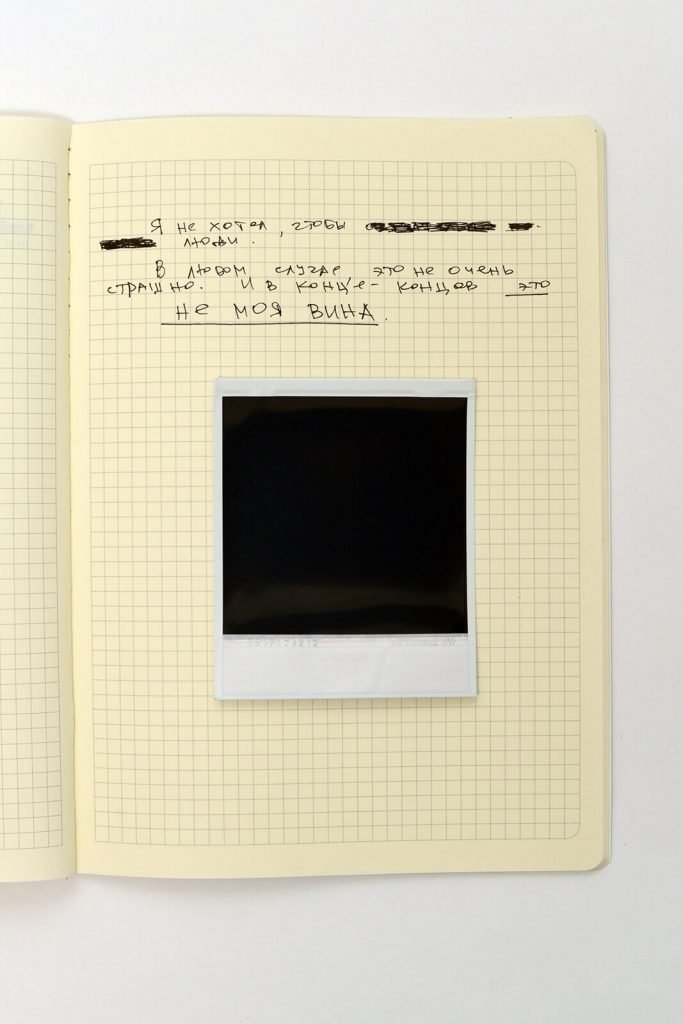 Я не хотел, чтобы
люди.
В любом случае это не очень
страшно. И в конце-концов это
НЕ МОЯ ВИНА.